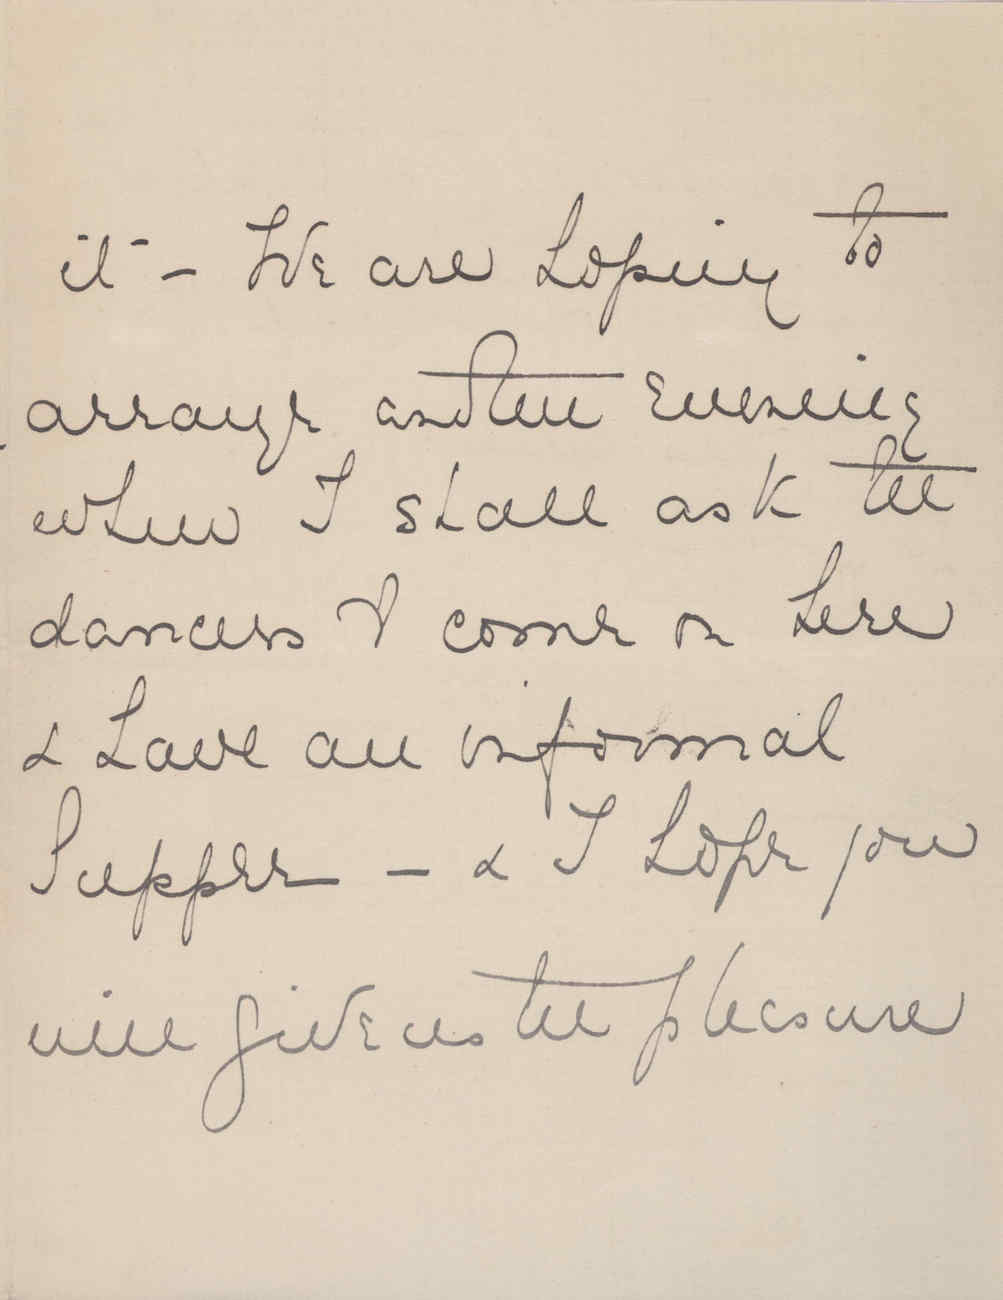 it - We are hoping to
arrange another evening
when I shall ask the
dancers to come on here
& have an informal
Supper - & I hope you
will give us the pleasure